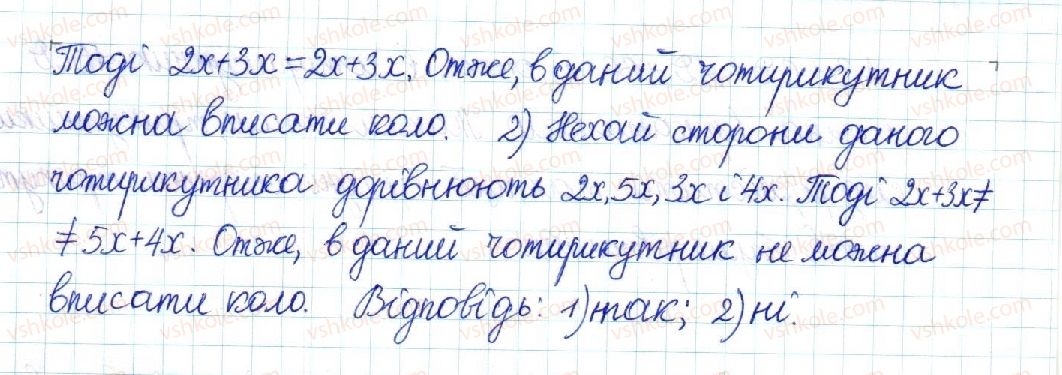 Тоді 2x+3x=2x+3x. Отже, в даний чотирикутник
можна вписати коло. 2) Нехай сторони даного
чотирикутника дорівнюють 2x, 5x, 3x і 4x. Тоді 2x+3x≠
≠5x+4x. Отже, в даний чотирикутник не можна
вписати коло. Відповідь: 1) так; 2) ні.